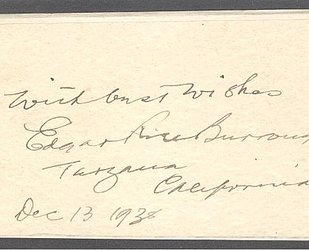 With best wishes
Edgar Rice Burroughs
Tarzana
California
Dec 13 1938